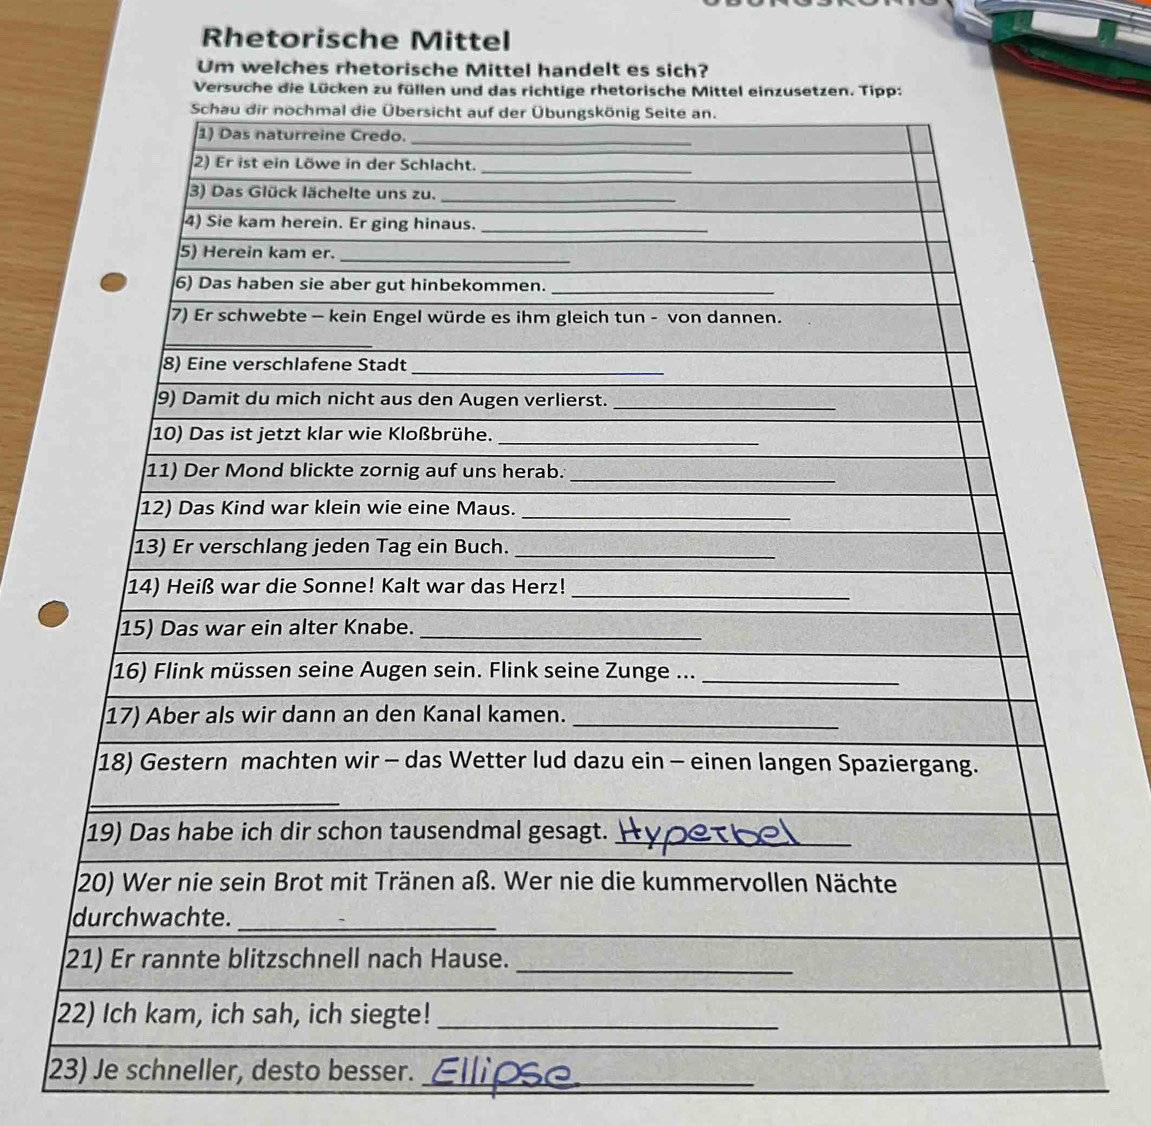 Rhetorische Mittel
Um welches rhetorische Mittel handelt es sich?
Versuche die Lücken zu füllen und das richtige rhetorische Mittel einzusetzen. Tipp:
Schau dir nochmal die Übersicht auf der Übungskönig Seite an.
1) Das naturreine Credo.
2) Er ist ein Löwe in der Schlacht.
3) Das Glück lächelte uns zu.
4) Sie kam herein. Er ging hinaus.
5) Herein kam er.
6) Das haben sie aber gut hinbekommen.
7) Er schwebte – kein Engel würde es ihm gleich tun - von dannen.
8) Eine verschlafene Stadt
9) Damit du mich nicht aus den Augen verlierst.
10) Das ist jetzt klar wie Kloßbrühe.
11) Der Mond blickte zornig auf uns herab.
12) Das Kind war klein wie eine Maus.
13) Er verschlang jeden Tag ein Buch.
14) Heiß war die Sonne! Kalt war das Herz!
15) Das war ein alter Knabe.
16) Flink müssen seine Augen sein. Flink seine Zunge ...
17) Aber als wir dann an den Kanal kamen.
18) Gestern machten wir – das Wetter lud dazu ein – einen langen Spaziergang.
19) Das habe ich dir schon tausendmal gesagt. Hyperbel
20) Wer nie sein Brot mit Tränen aß. Wer nie die kummervollen Nächte
durchwachte.
21) Er rannte blitzschnell nach Hause.
22) Ich kam, ich sah, ich siegte!
23) Je schneller, desto besser. Ellipse